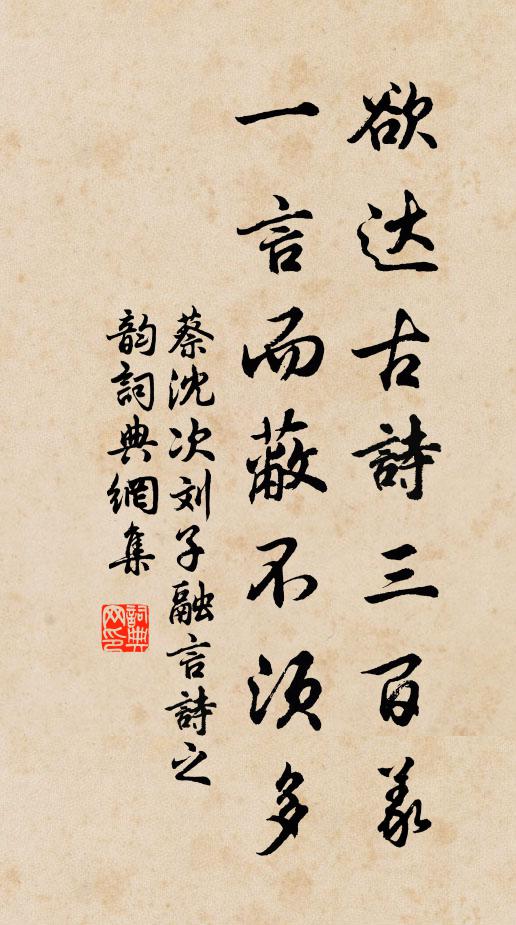 欲达古詩三百義
一言而蔽不須多
蔡沈次刘子融言詩之
韵詞典網集
詞典
网印